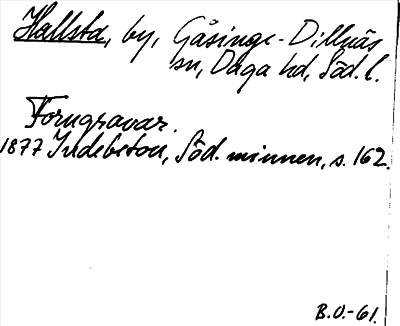 Hallsta, by, Gåsinge-Dillnäs
sn, Daga hd, Söd. l.
Forngravar.
1877 Indebetou, Söd. minnen, s. 162.
B.O.-61.